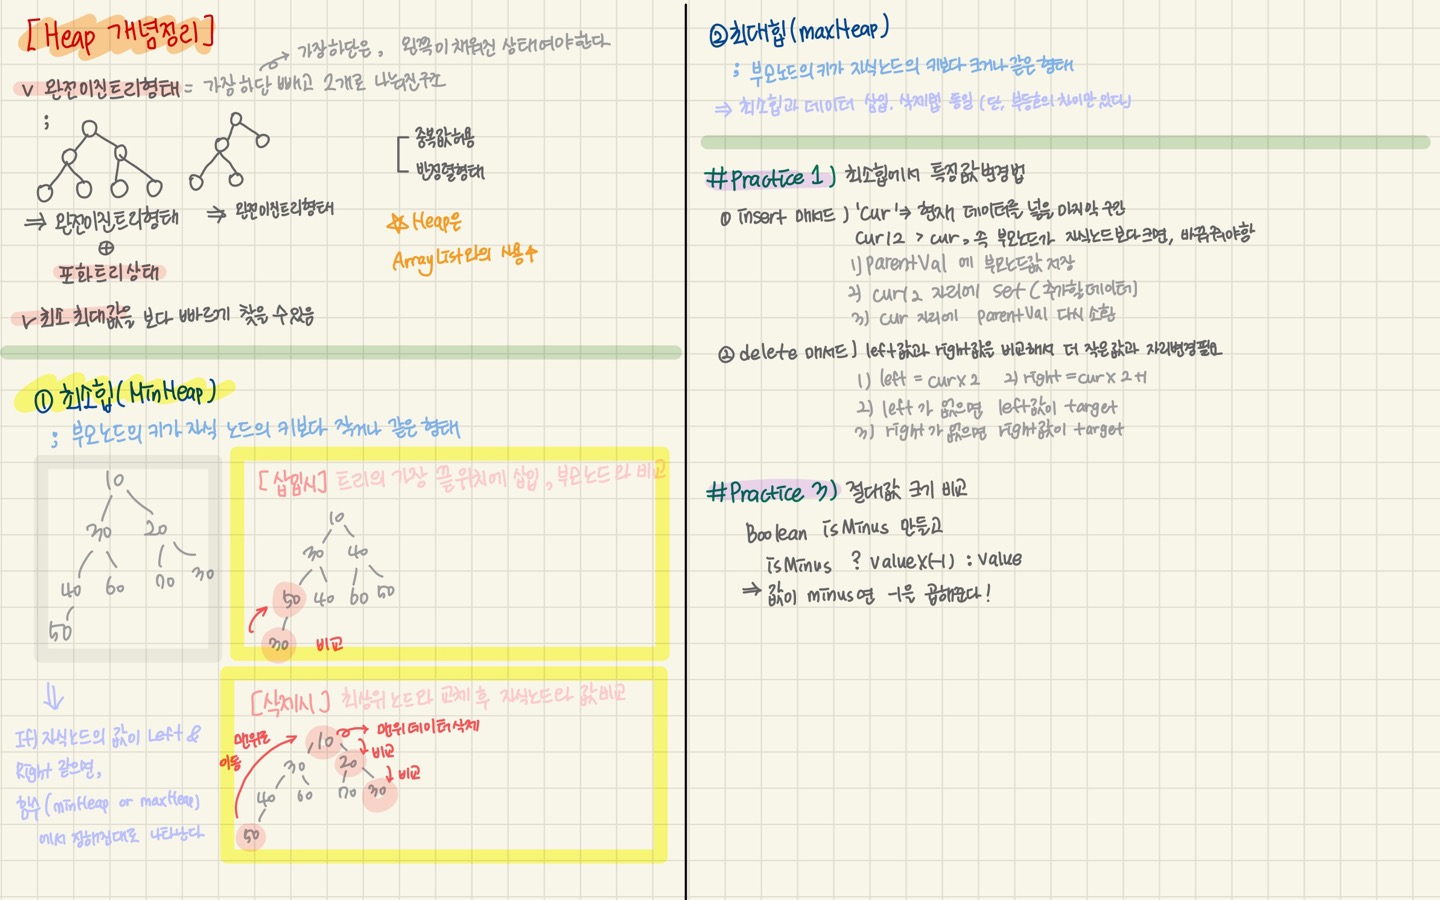 [Heap 개념정리]
가장하단은, 왼쪽이 채워진 상태여야한다
v 완전이진트리형태 = 가장하단 빼고 2개로 나눠진구조
;
중복값허용
반정렬형태
⇒ 완전이진트리형태
⊕
포화트리상태
⇒ 완전이진트리형태
☆ Heap은
ArrayList와의 사용↑
v 최소 최대값을 보다 빠르게 찾을 수 있음
① 최소힙(MinHeap)
; 부모노드의 키가 자식 노드의 키보다 작거나 같은 형태
10
30 20
40 60 70 30
50
[삽입시] 트리의 가장 끝위치에 삽입, 부모노드와 비교
10
30 40
50 40 60 50
30 비교
⇓
If) 자식노드의 값이 Left &
Right 같으면,
함수(minHeap or maxHeap)
에서 정해진대로 나타난다
[삭제시] 최상위 노드와 교체 후 자식노드와 값비교
맨위로
이동
10 → 맨위데이터삭제
비교
30 20
비교
40 60 70 30
50
② 최대힙(maxHeap)
; 부모노드의 키가 자식노드의 키보다 크거나 같은 형태
⇒ 최소힙과 데이터 삽입, 삭제법 동일 (단, 부등호의 차이만 있다)
#Practice 1) 최소힙에서 특정값변경법
① insert 메서드) 'cur' ⇒ 현재 데이터를 넣을 마지막 구간
cur/2 > cur, 즉 부모노드가 자식노드보다크면, 바꿔주어야함
1) parentVal 에 부모노드값 저장
2) cur/2 자리에 set (추가할데이터)
3) cur 자리에 parentVal 다시 소환
② delete 메서드) left값과 right값을 비교해서 더 작은값과 자리변경필요
1) left = cur×2 2) right = cur×2+1
2) left 가 없으면 left값이 target
3) right 가 없으면 right값이 target
#Practice 3) 절대값 크기 비교
Boolean isMinus 만들고
isMinus ? value×(-1) : value
⇒ 값이 minus면 -1을 곱해준다!